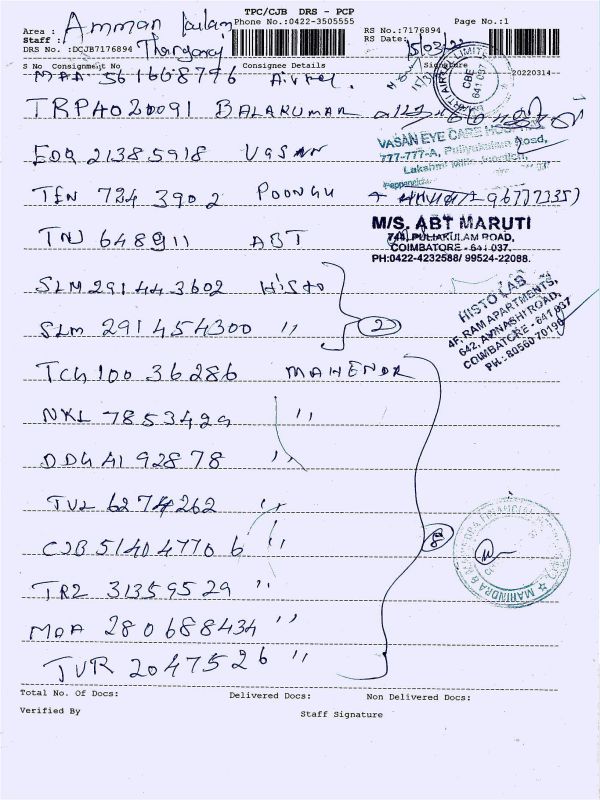 TPC/CJB DRS - PCP
Area : Amman kulam Phone No.:0422-3505555 Page No.:1
Staff : Thangaraj RS No.:7176894
DRS No. :DCJB7176894 RS Date: 15/03/22
S No Consignment No Consignee Details Signature 20220314-
MAA 561668776 Airtel.
TRP4020091 BALAKUMAR
EDQ 21385918 VASAN
VASAN EYE CARE HOSPITAL
777-777-A, Puliyakulam Road,
Lakshmi Mills Junction,
TEN 7243902 POONGU
TNJ 648911 ABT
M/S. ABT MARUTI
744, PULIAKULAM ROAD,
COIMBATORE - 641 037.
PH:0422-4232588/ 99524-22088.
SLM 291443602 Histo
SLM 291454300 "
2
HISTO LAB
4F, RAM APARTMENTS,
642, AVINASHI ROAD,
COIMBATORE - 641 037
PH : 80560 70190
TCG 10036286 MAHENDR
NKL 7853429 "
DDG 4192878 "
TVL 6274262 "
CJB 514047706 "
8
TRZ 31359529 "
MAA 280688434 "
TVR 2047526 "
Total No. Of Docs: Delivered Docs: Non Delivered Docs:
Verified By Staff Signature